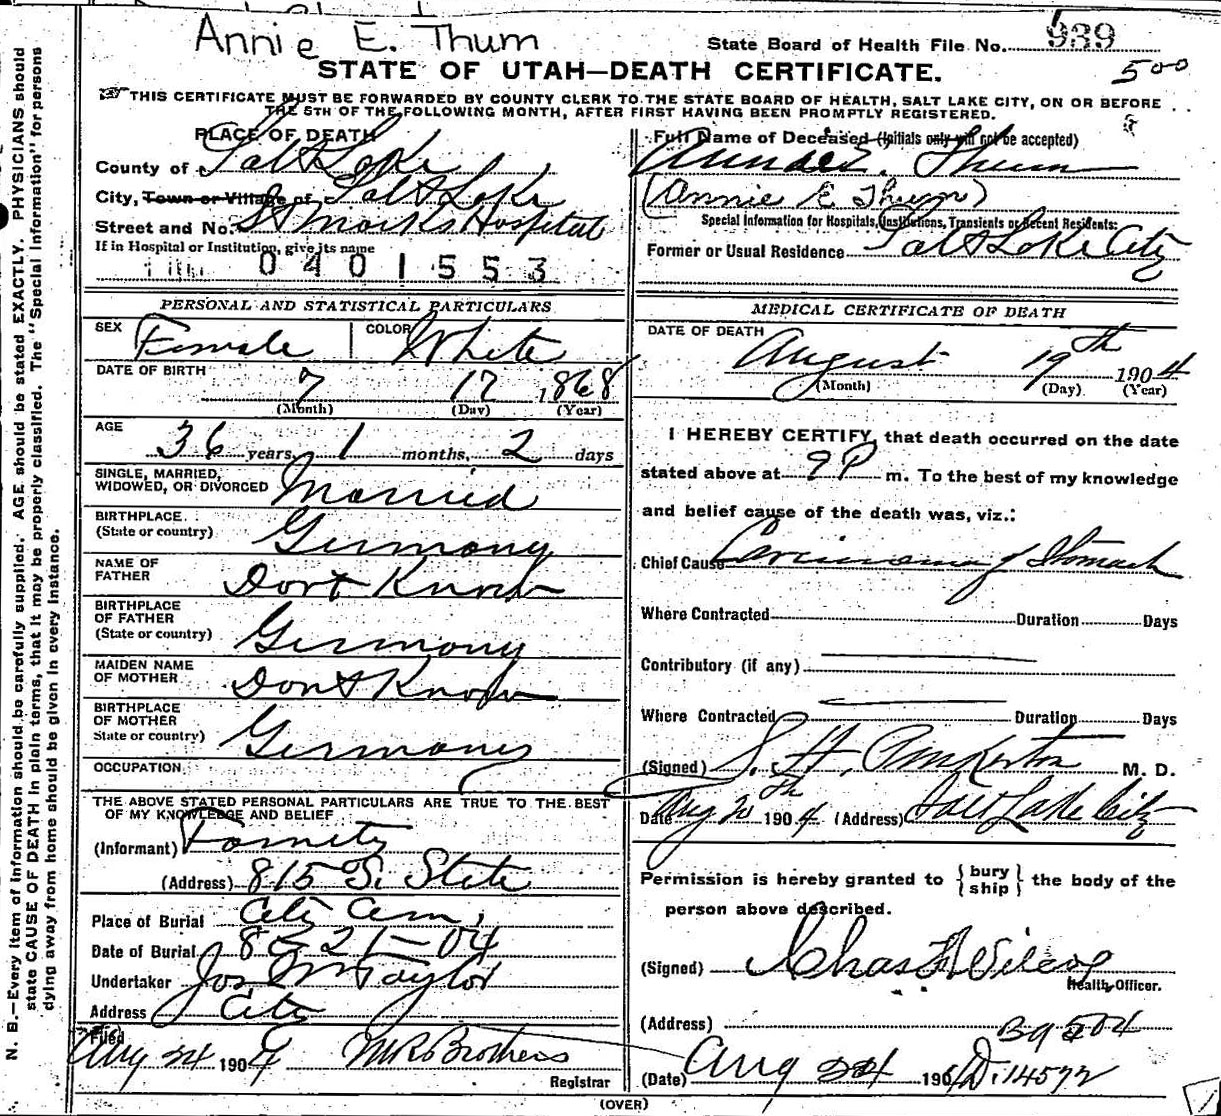 Annie E. Thum
State Board of Health File No. 939
500
STATE OF UTAH—DEATH CERTIFICATE.
THIS CERTIFICATE MUST BE FORWARDED BY COUNTY CLERK TO THE STATE BOARD OF HEALTH, SALT LAKE CITY, ON OR BEFORE
THE 5TH OF THE FOLLOWING MONTH, AFTER FIRST HAVING BEEN PROMPTLY REGISTERED.
PLACE OF DEATH
County of Salt Lake
City, Town or Village of Salt Lake
Street and No. St Marks Hospital
If in Hospital or Institution, give its name
0401553
Full Name of Deceased (Initials only will not be accepted)
Thum
(Annie E Thum)
Special Information for Hospitals, Institutions, Transients or Recent Residents:
Former or Usual Residence Salt Lake City
PERSONAL AND STATISTICAL PARTICULARS
SEX Female COLOR White
DATE OF BIRTH
7 17 1868
(Month) (Day) (Year)
AGE
36 years, 1 months, 2 days
SINGLE, MARRIED,
WIDOWED, OR DIVORCED Married
BIRTHPLACE
(State or country) Germony
NAME OF
FATHER Dont Know
BIRTHPLACE
OF FATHER
(State or country) Germony
MAIDEN NAME
OF MOTHER Dont Know
BIRTHPLACE
OF MOTHER
State or country) Germony
OCCUPATION
THE ABOVE STATED PERSONAL PARTICULARS ARE TRUE TO THE BEST
OF MY KNOWLEDGE AND BELIEF
(Informant)
(Address) 815 So. State
Place of Burial City Cem,
Date of Burial 8-21-04
Undertaker Jos Wm Taylor
Address City
Filed
Aug 24 1904 M R Brothers
Registrar
MEDICAL CERTIFICATE OF DEATH
DATE OF DEATH
August 19th 1904
(Month) (Day) (Year)
I HEREBY CERTIFY, that death occurred on the date
stated above at 9 P m. To the best of my knowledge
and belief cause of the death was, viz.:
Chief Cause Carcinoma of Stomach
Where Contracted Duration Days
Contributory (if any)
Where Contracted Duration Days
(Signed) S. H. Pinkerton M. D.
Date Aug 20th 1904 (Address) Salt Lake City
Permission is hereby granted to {bury
ship} the body of the
person above described.
(Signed) Chas F Wilcox
Health Officer.
(Address)
B9504
(Date) Aug 24 190 D.14572
(OVER)
N. B.—Every item of information should be carefully supplied. AGE should be stated EXACTLY. PHYSICIANS should
state CAUSE OF DEATH in plain terms, that it may be properly classified. The "Special Information" for persons
dying away from home should be given in every instance.